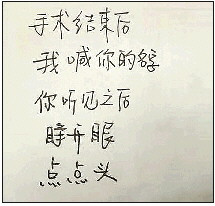 手术结束后
我喊你的名字
你听见之后
睁开眼
点点头